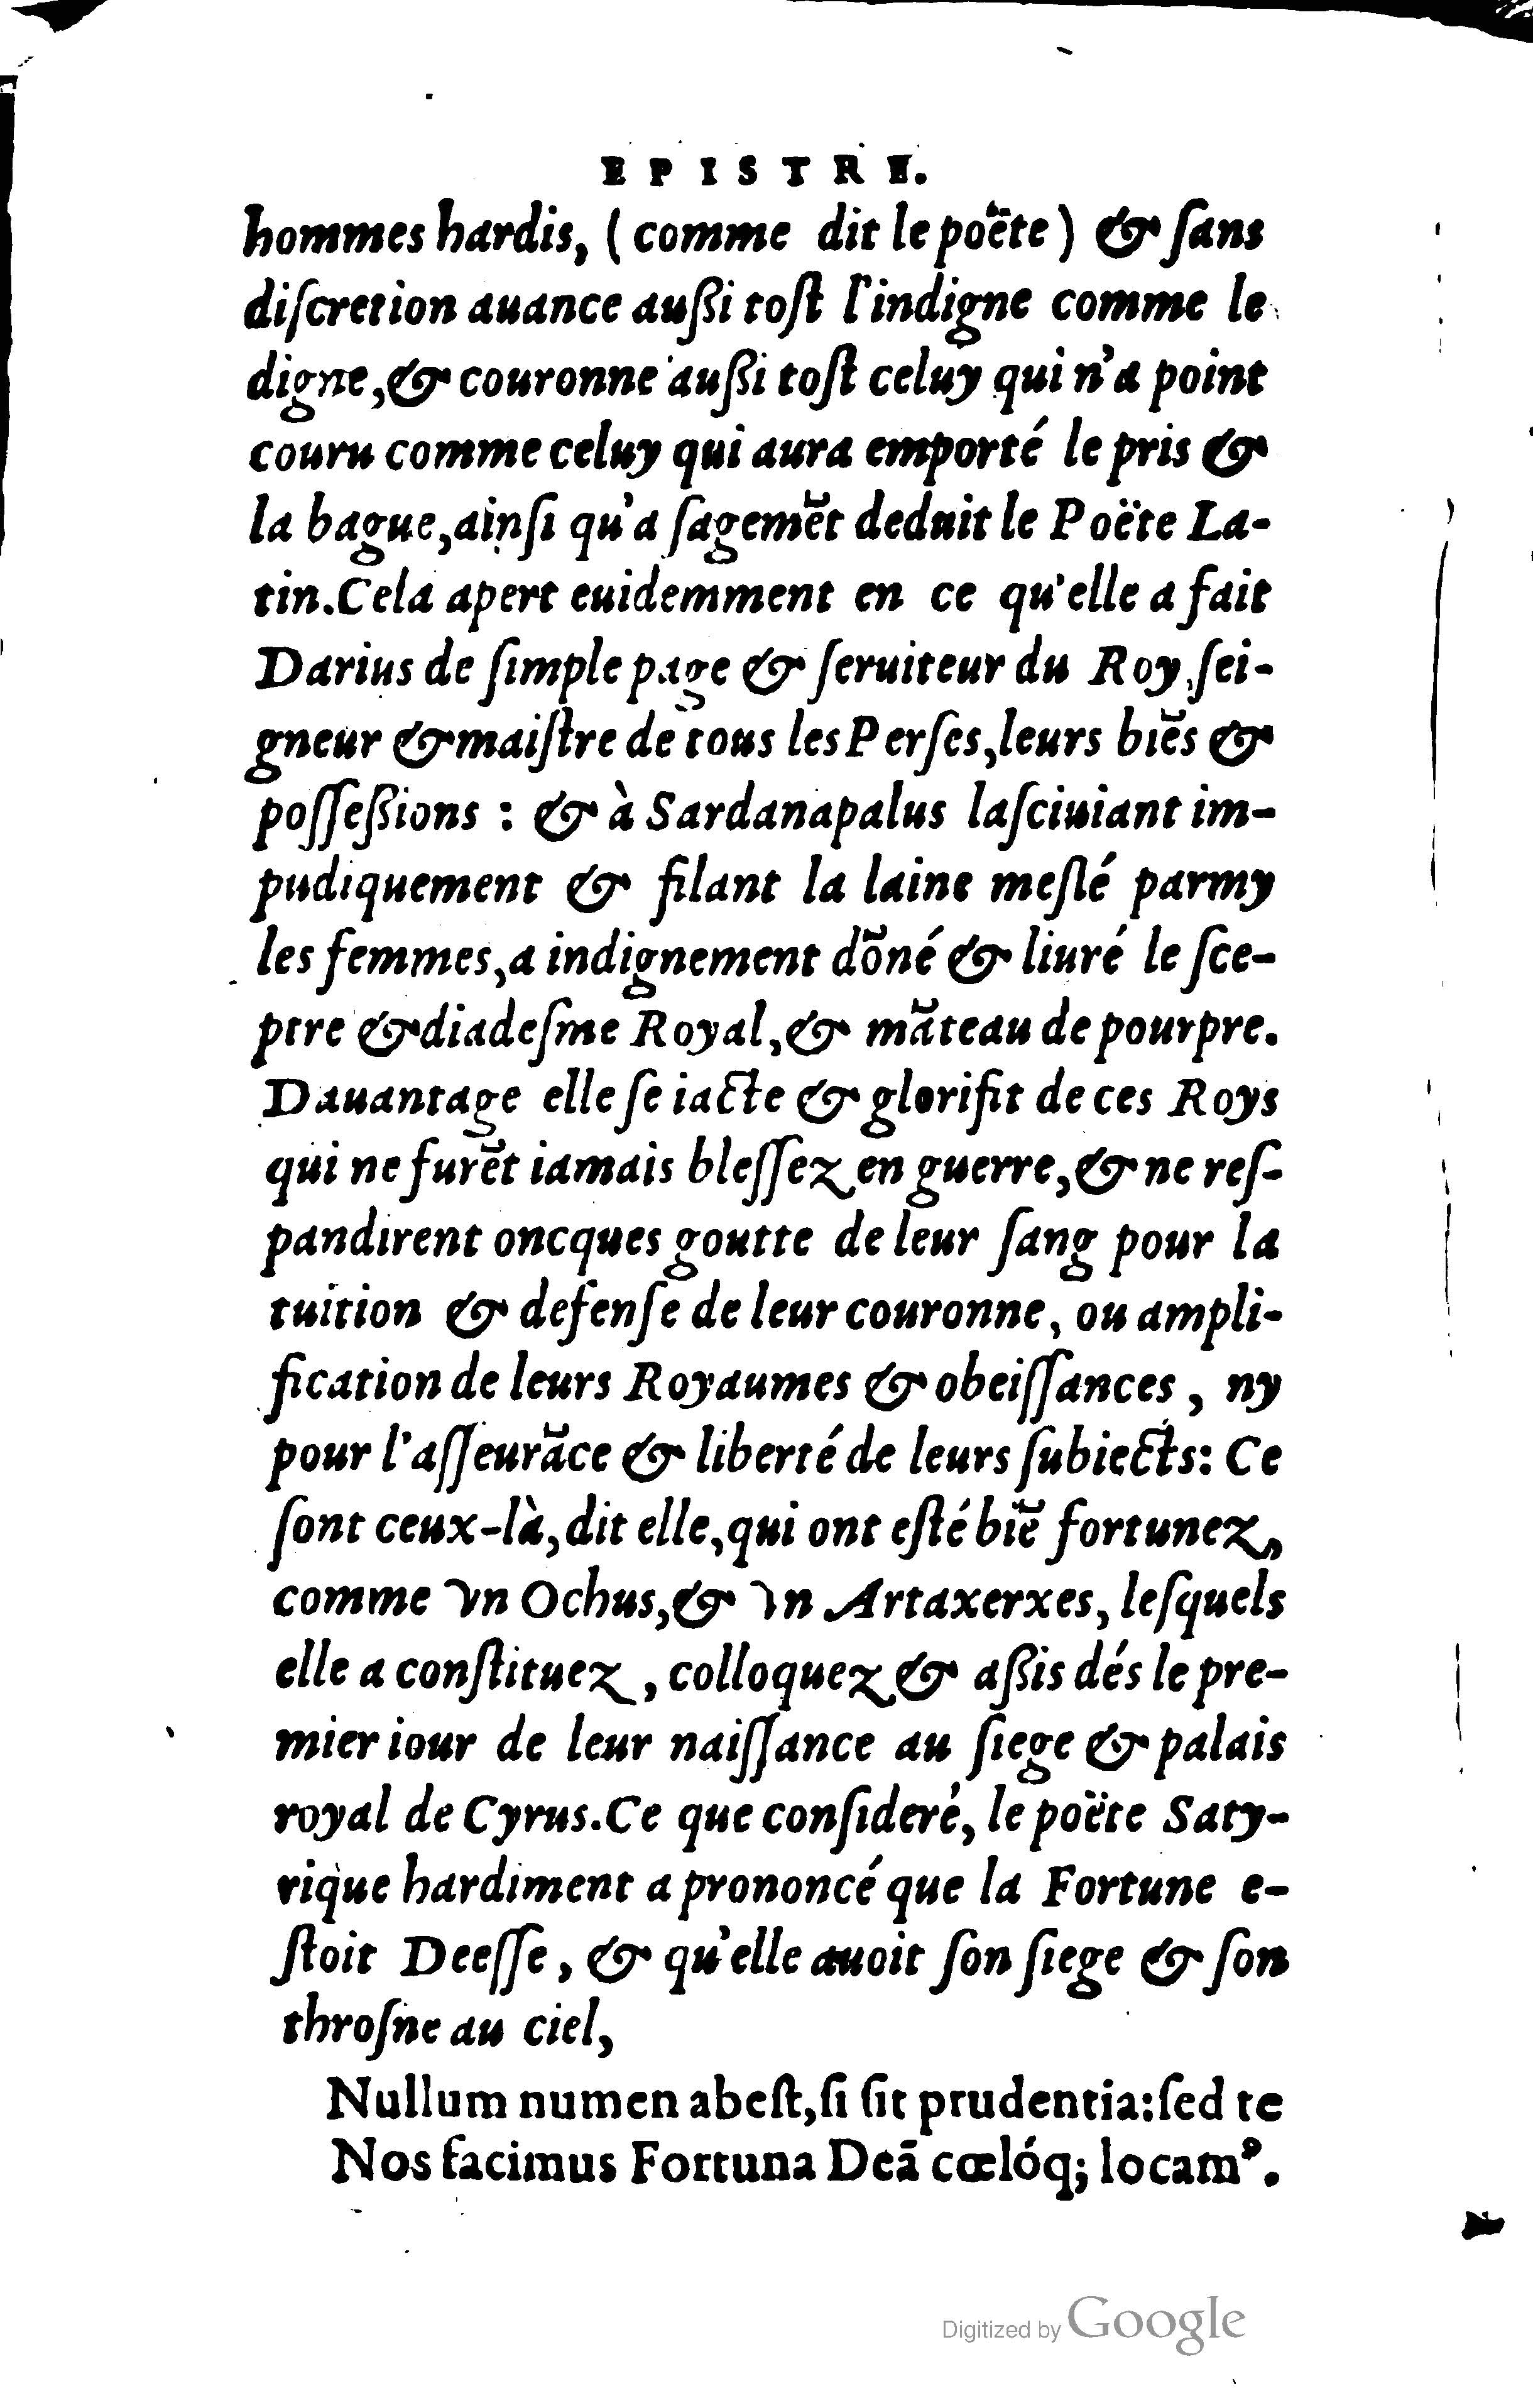 EPISTRE.
hommes hardis, (comme dit le poëte) & ſans
diſcretion auance außi toſt l'indigne comme le
digne,& couronne außi toſt celuy qui n'a point
couru comme celuy qui aura emporté le pris &
la bague,ainſi qu'a ſagemẽt deduit le Poëte La-
tin.Cela apert euidemment en ce qu'elle a fait
Darius de ſimple page & ſeruiteur du Roy,ſei-
gneur & maiſtre de tous les Perſes,leurs biẽs &
poſſeßions : & à Sardanapalus laſciuiant im-
pudiquement & filant la laine meſlé parmy
les femmes,a indignement dõné & liuré le ſce-
ptre & diadeſme Royal,& mãteau de pourpre.
Dauantage elle ſe iacte & glorifit de ces Roys
qui ne furẽt iamais bleſſez en guerre,& ne reſ-
pandirent oncques goutte de leur ſang pour la
tuition & defenſe de leur couronne, ou ampli-
fication de leurs Royaumes & obeiſſances, ny
pour l'aſſeurãce & liberté de leurs ſubiects: Ce
ſont ceux-là,dit elle,qui ont eſté biẽ fortunez,
comme vn Ochus,& vn Artaxerxes, leſquels
elle a conſtituez, colloquez & aßis dés le pre-
mier iour de leur naiſſance au ſiege & palais
royal de Cyrus.Ce que conſideré, le poëte Saty-
rique hardiment a prononcé que la Fortune e-
ſtoit Deeſſe, & qu'elle auoit ſon ſiege & ſon
throſne au ciel,
Nullum numen abeſt,ſi ſit prudentia:ſed te
Nos facimus Fortuna Deã cœlóq; locamꝰ.
Digitized by Google